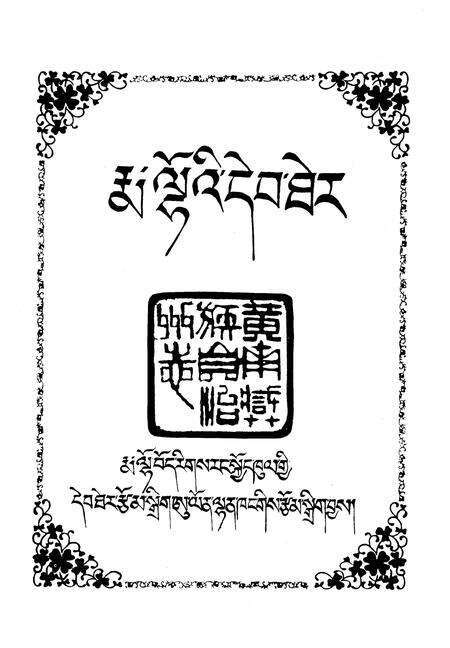 རྨ་ལྷོའི་དེབ་ཐེར
黄南藏
族自治
州志
རྨ་ལྷོ་བོད་རིགས་རང་སྐྱོང་ཁུལ་གྱི
དེབ་ཐེར་རྩོམ་སྒྲིག་ཨུ་ཡོན་ལྷན་ཁང་གིས་རྩོམ་སྒྲིག་བྱས།།